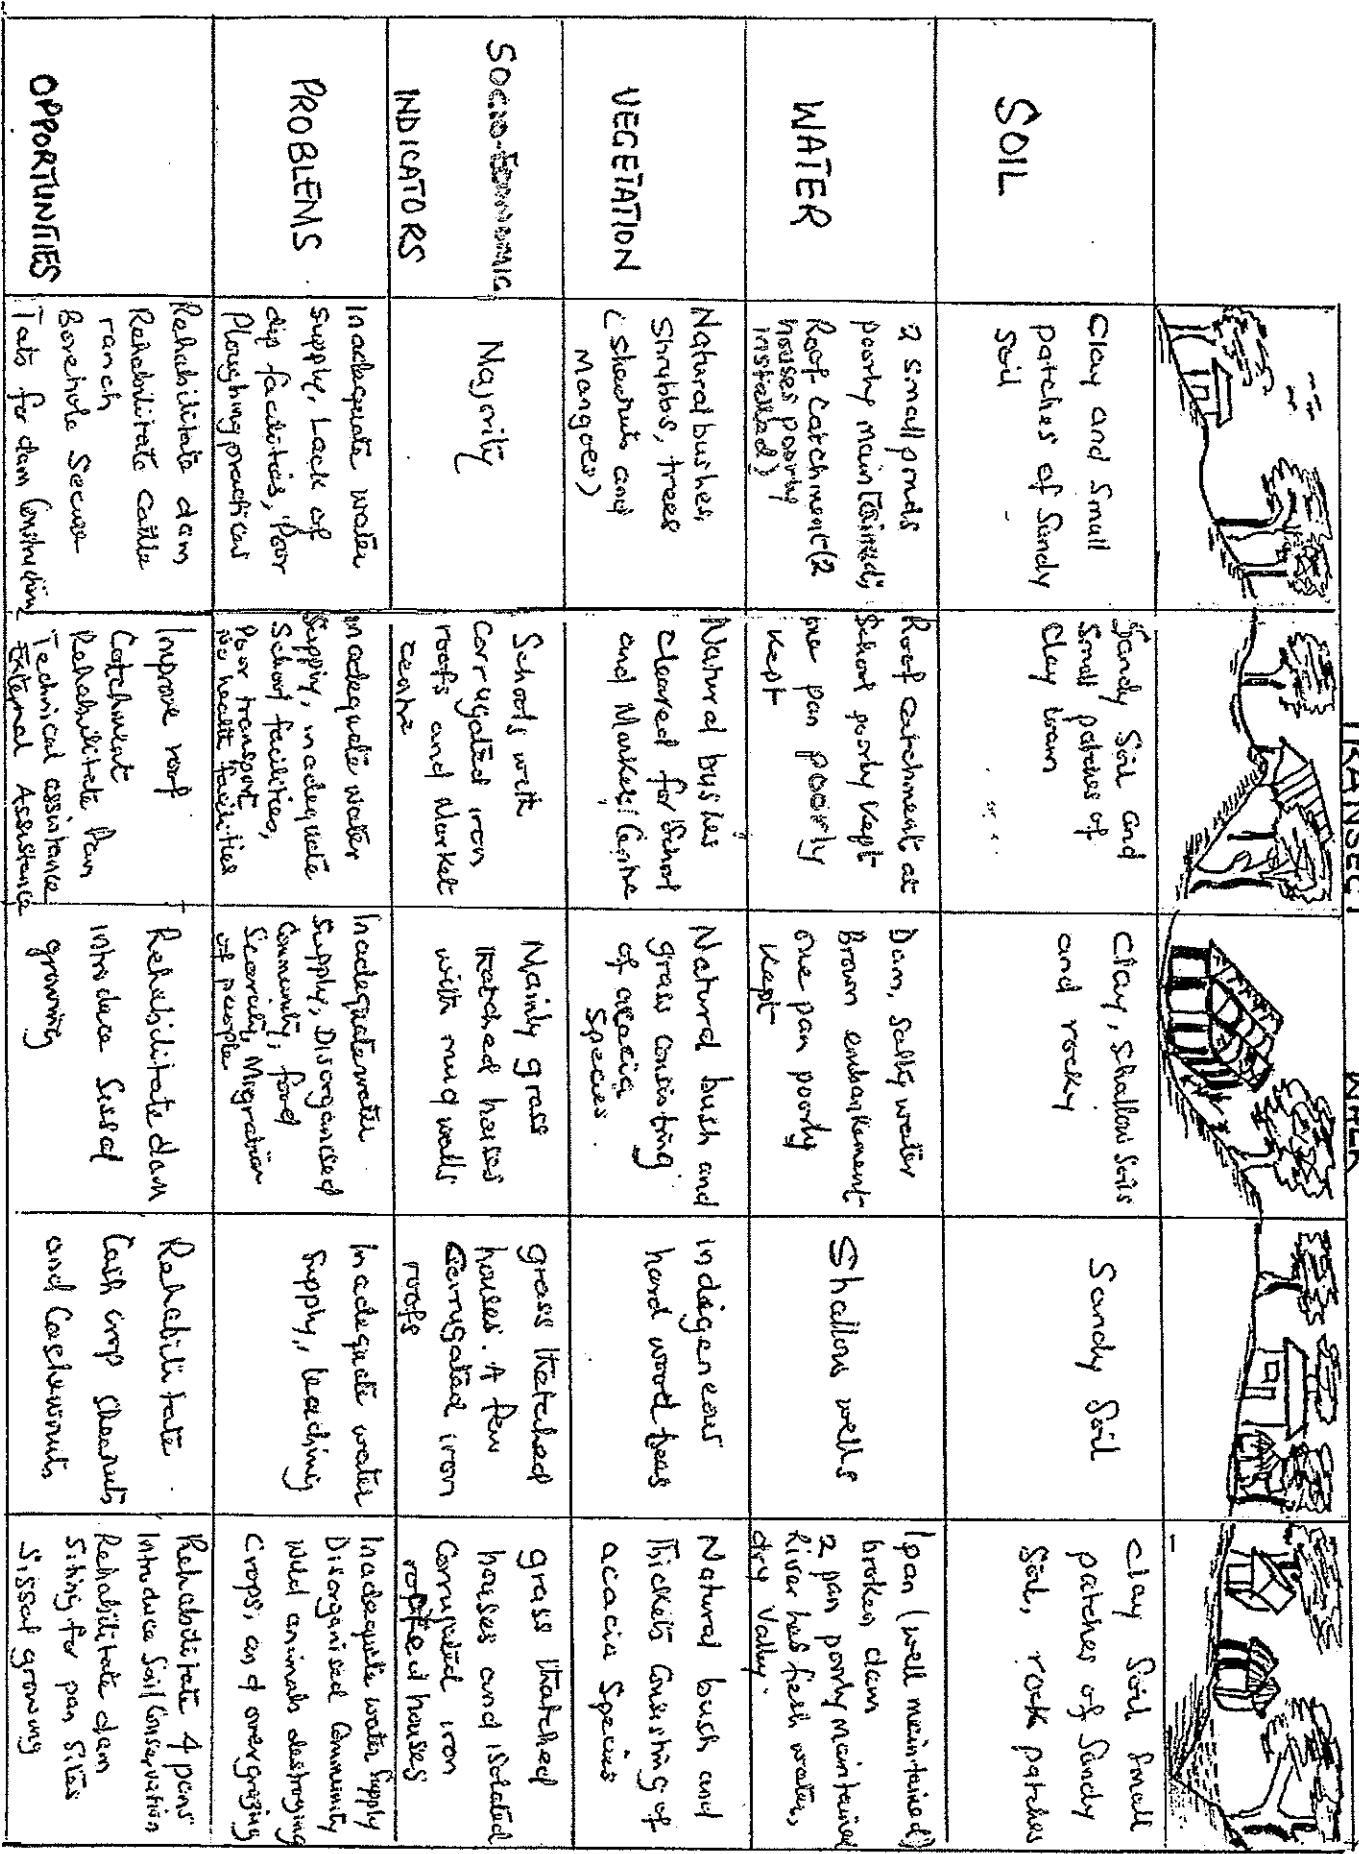 TRANSECT WALK
SOIL
Clay and Small
patches of Sandy
Soil
Sandy Soil and
Small patches of
Clay loam
Clay, Shallow Soils
and rocky
Sandy Soil
Clay Soil Small
patches of Sandy
Soil, rock patches
WATER
2 small ponds
poorly maintained;
Roof catchment (2
houses poorly
installed)
Roof catchment at
School poorly kept
one pan poorly
kept
Dam, Salty water
Brown embankement
one pan poorly
kept
Shallow wells
1 pan (well maintained)
broken dam
2 pan poorly maintained
River has fresh water,
dry Valley.
VEGETATION
Natural bushes,
Shrubbs, trees
(sheanuts and
Mangoes)
Natural bushes
cleared for School
and Market Centre
Natural bush and
grass consisting
of acacia
Species.
indigeneous
hard wood trees
Natural bush and
Thickets Consisting of
acacia Species
SOCIO-ECONOMIC
INDICATORS
Majority
Schools with
Corrugated iron
roofs and Market
centre
Mainly grass
thetched houses
with mud walls
grass thetched
houses. A few
Corrugated iron
roofs
grass thatched
houses and isolated
Corrugated iron
roofed houses
PROBLEMS
Inadequate water
supply, Lack of
dip facilities, Poor
Ploughing practices
Inadequate water
Supply, inadequate
School facilities,
Poor transport,
No health facilities
Inadequate water
Supply, Disorganised
Community, food
Scarcity, Migration
of people
Inadequate water
Supply, leaching
Inadequate water Supply
Disorganised Community
Wild animals destroying
Crops, and overgrazing
OPPORTUNITIES
Rehabilitate dam
Rehabilitate Cattle
ranch
Borehole Secure
for dam Construction
Improve roof
Catchment
Rehabilitate Pan
Technical assistance
External Assistance
Rehabilitate dam
introduce Sissal
growing
Rehabilitate
Cash crop Sheanuts
and Cashewnuts
Rehabilitate 4 pans
Introduce Soil Conservation
Rehabilitate dam
Siting for pan Sites
Sissal growing